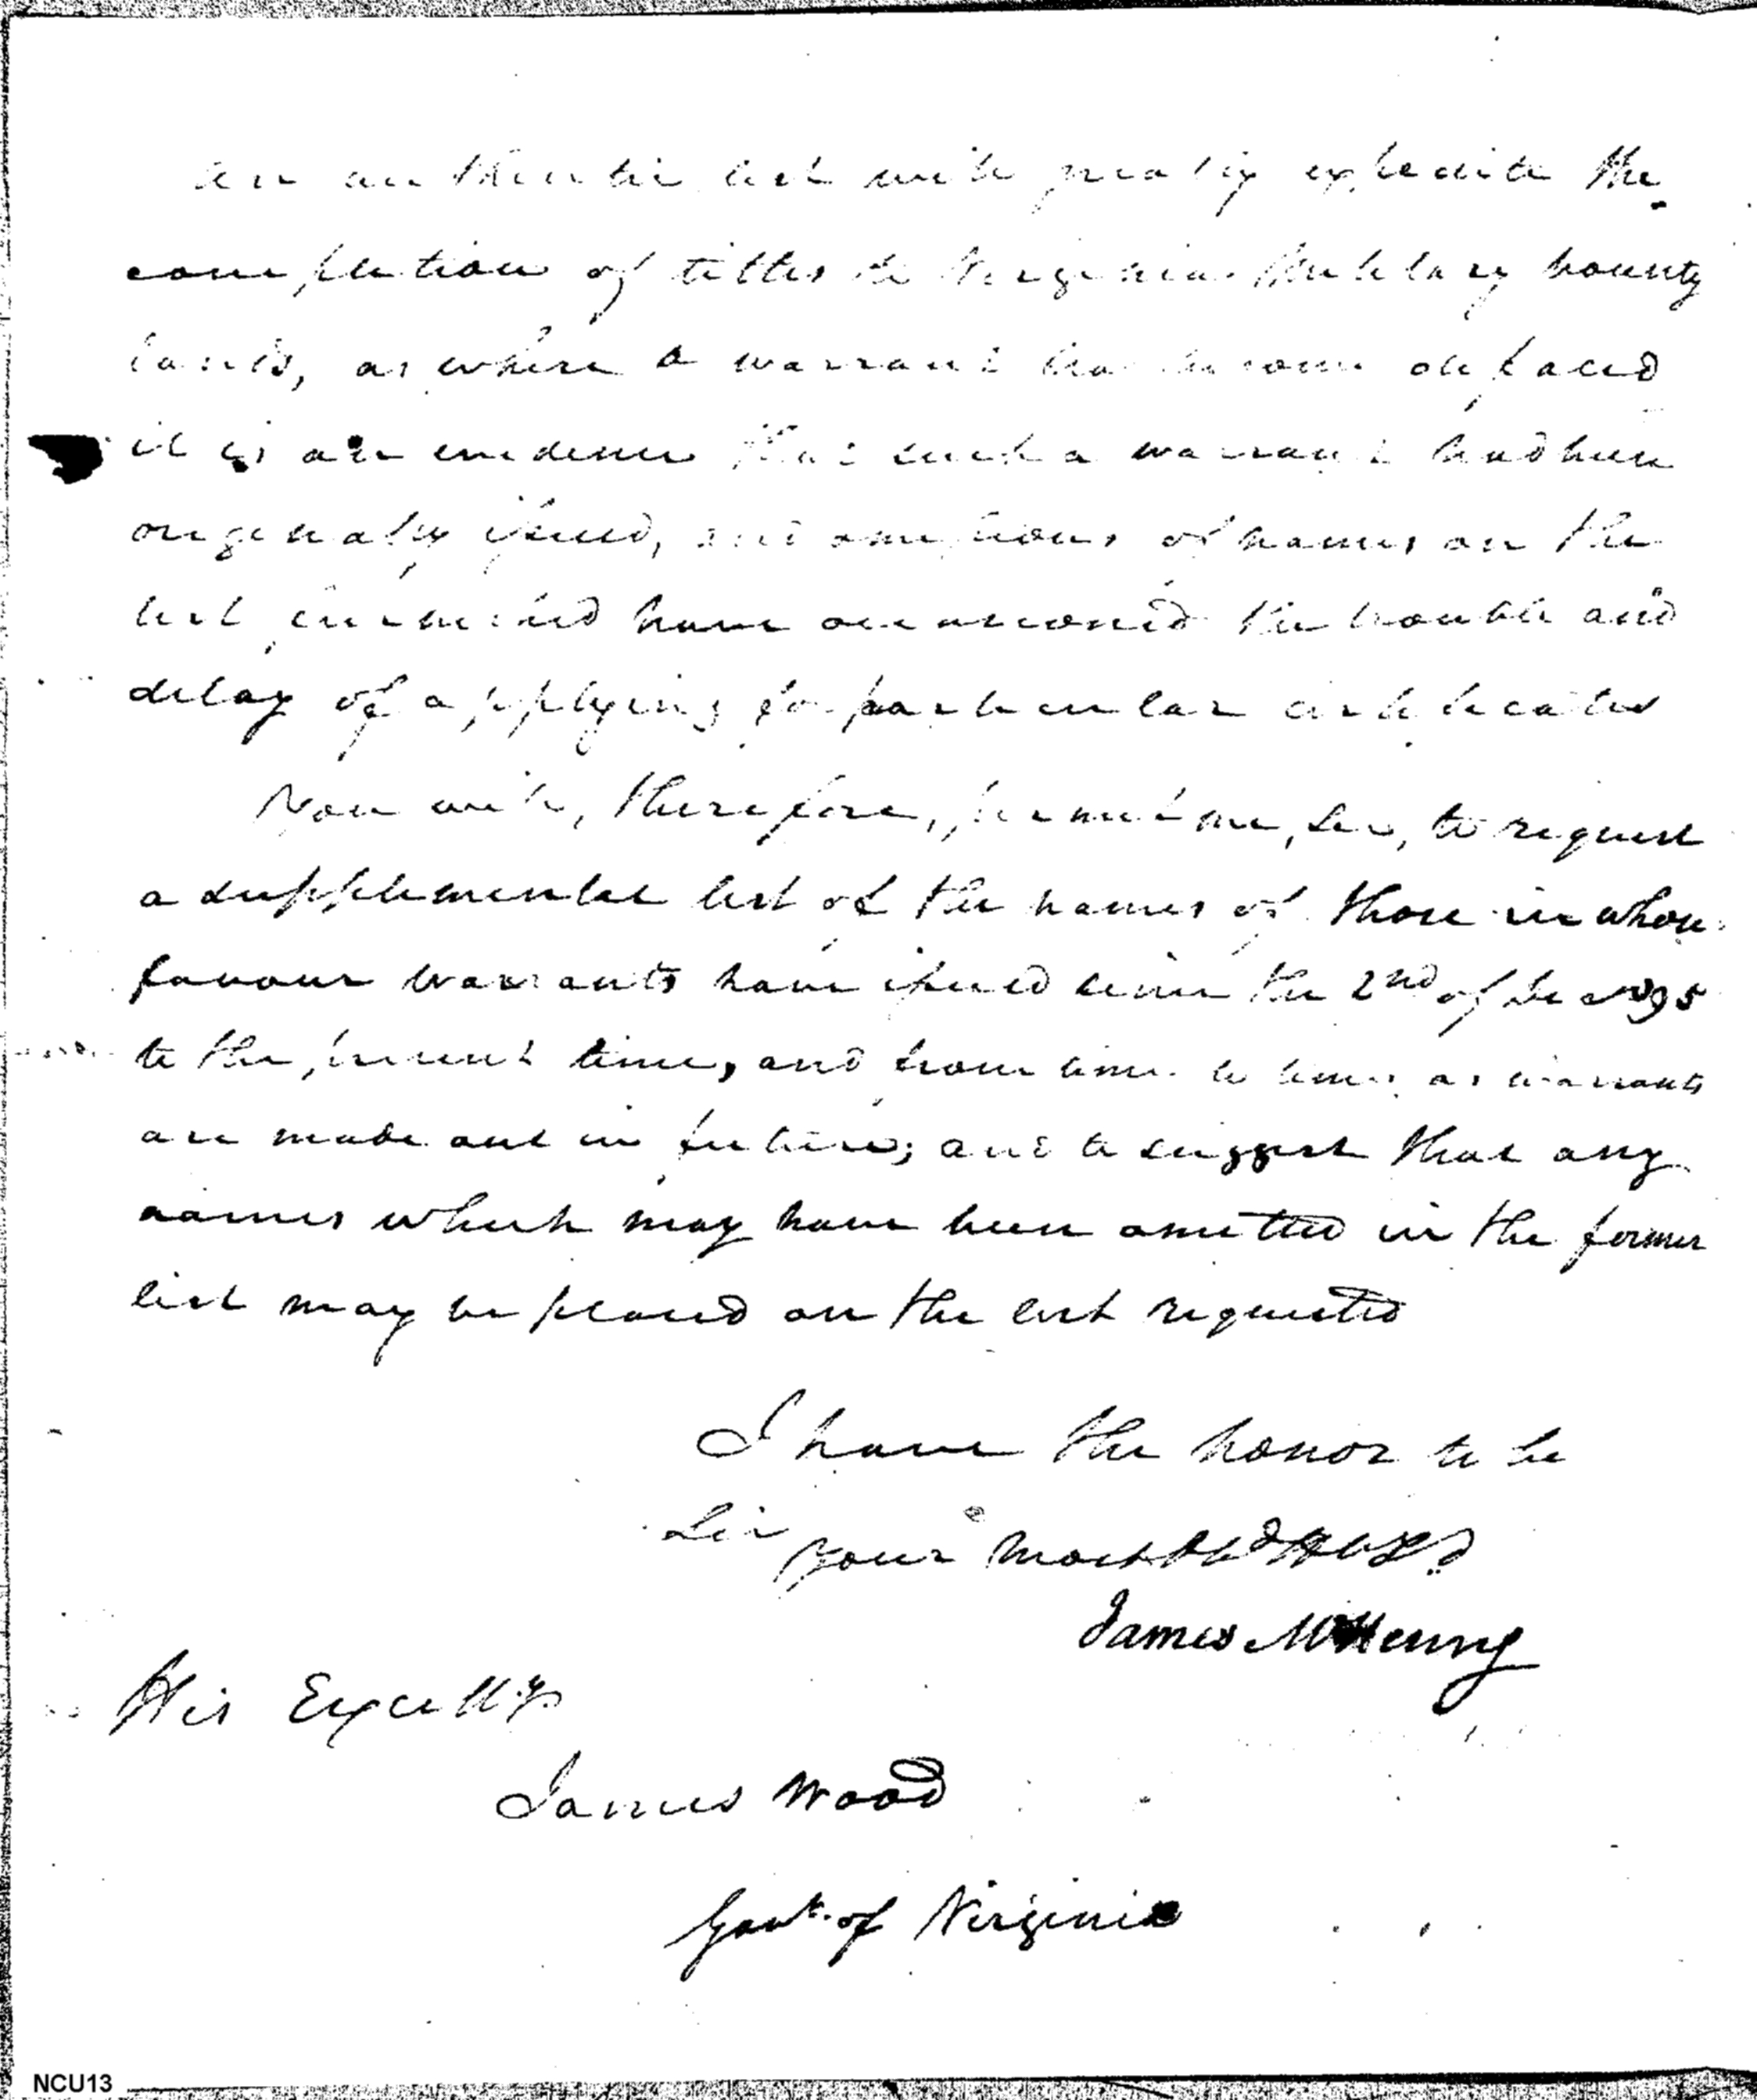 an authentic list will greatly expedite the
completion of titles to Virginia Military bounty
lands, as where a warrant has become defaced
it is an evidence that such a warrant had been
originally issued, and omissions of names on the
list furnished have occasioned the trouble and
delay of applying for particular certificates
You will, therefore, permit me, Sir, to request
a supplemental list of the names of those in whose
favour warrants have issued since the 2nd of 95
to the present time, and from time to time as warrants
are made out in future; and to suggest that any
names which may have been omitted in the former
list may be placed on the list requested
I have the honor to be
Sir
Your most Obd Hbl Sd
James McHenry
His Excelly
James Wood
Govr. of Virginia
NCU13